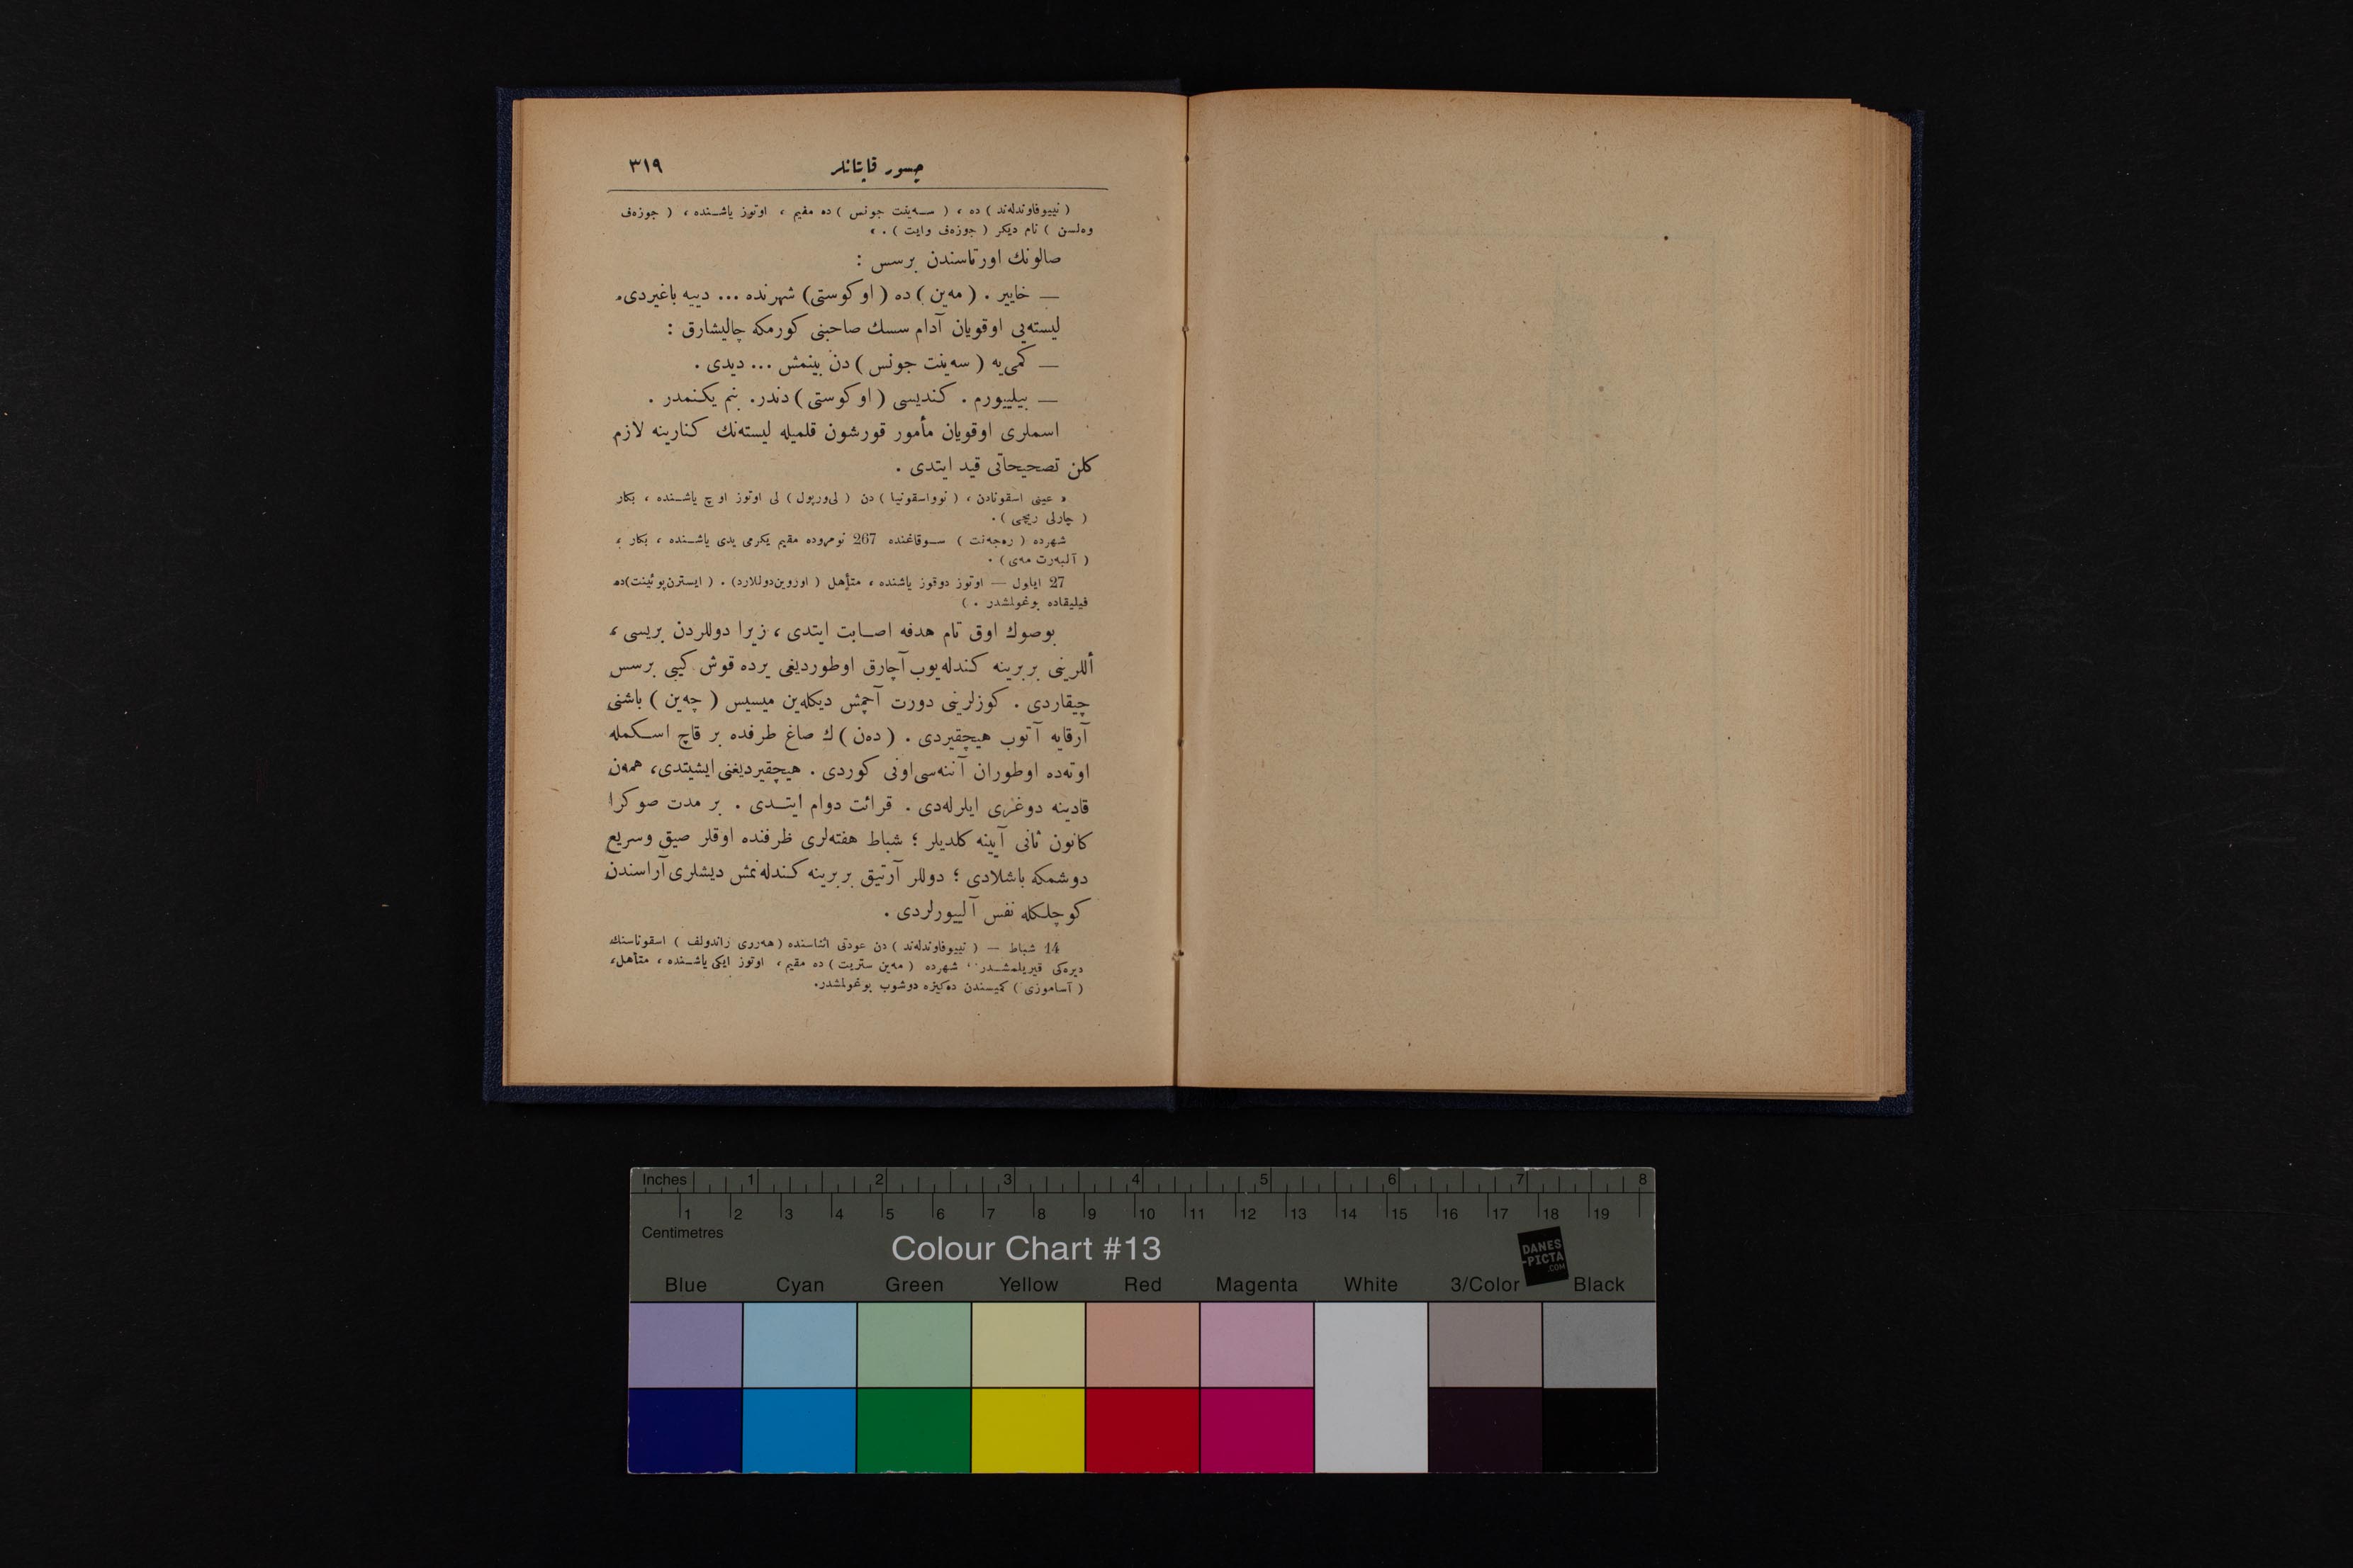 جسور قاپتانلر ٣١٩
( نييوفاوندلەند ) ده ، ( سەينت جونس ) ده مقيم ، اوتوز ياشنده ، ( جوزەف
وەلسن ) نام ديكر ( جوزەف وايت ) . ،
صالونك اورتاسندن برسس :
— خايير . ( مەين ) ده ( اوكوستى ) شهرنده ... دييه باغيردى.
ليستەيى اوقويان آدام سسك صاحبنى كورمكه چاليشارق :
— كمىيه ( سەينت جونس ) دن بينمش ... ديدى .
— بيلييورم . كنديسى ( اوكوستى ) دندر. بنم يكنمدر .
اسملرى اوقويان مأمور قورشون قلميله ليستەنك كنارينه لازم
كلن تصحيحاتى قيد ايتدى .
« عينى اسقونادن ، ( نوواسقوتيا ) دن ( لىورپول ) لى اوتوز اوچ ياشنده ، بكار
( چارلى ريچى ) .
شهرده ( رەجەنت ) سوقاغنده 267 نومروده مقيم يكرمى يدى ياشنده ، بكار ،
( آلبەرت مەى ) .
27 ايلول — اوتوز دوقوز ياشنده ، متأهل ( اوروين دوللارد ) . ( ايسترن پوئينت ) ده
فيليقاده بوغولمشدر . )
بوصوك اوق تام هدفه اصابت ايتدى ، زيرا دوللردن بريسى ،
أللرينى بربرينه كندلەيوب آچارق اوطورديغى يرده قوش كيبى برسس
چيقاردى . كوزلرينى دورت آچمش ديكلەين ميسيس ( چەين ) باشنى
آرقايه آتوب هيچقيردى . ( دەن ) ك صاغ طرفده بر قاچ اسكمله
اوتەده اوطوران آننەسى اونى كوردى . هيچقيرديغنى ايشيتدى، همەن
قادينه دوغرى ايلرلەدى . قرائت دوام ايتدى . بر مدت صوكرا
كانون ثانى آيينه كلديلر ؛ شباط هفتەلرى ظرفنده اوقلر صيق وسريع
دوشمكه باشلادى ؛ دوللر آرتيق بربرينه كندلەنمش ديشلرى آراسندن
كوچلكله نفس آلييورلردى .
14 شباط — ( نييوفاوندلەند ) دن عودتى اثناسنده ( هەررى راندولف ) اسقوناسنك
ديرەكى قيريلمشدر ، شهرده ( مەين ستريت ) ده مقيم ، اوتوز ايكى ياشنده ، متأهل،
( آساموزى ) كميسندن دەكيزه دوشوب بوغولمشدر.
Inches 1 2 3 4 5 6 7 8
1 2 3 4 5 6 7 8 9 10 11 12 13 14 15 16 17 18 19
Centimetres
Colour Chart #13
DANES
-PICTA
.COM
Blue Cyan Green Yellow Red Magenta White 3/Color Black